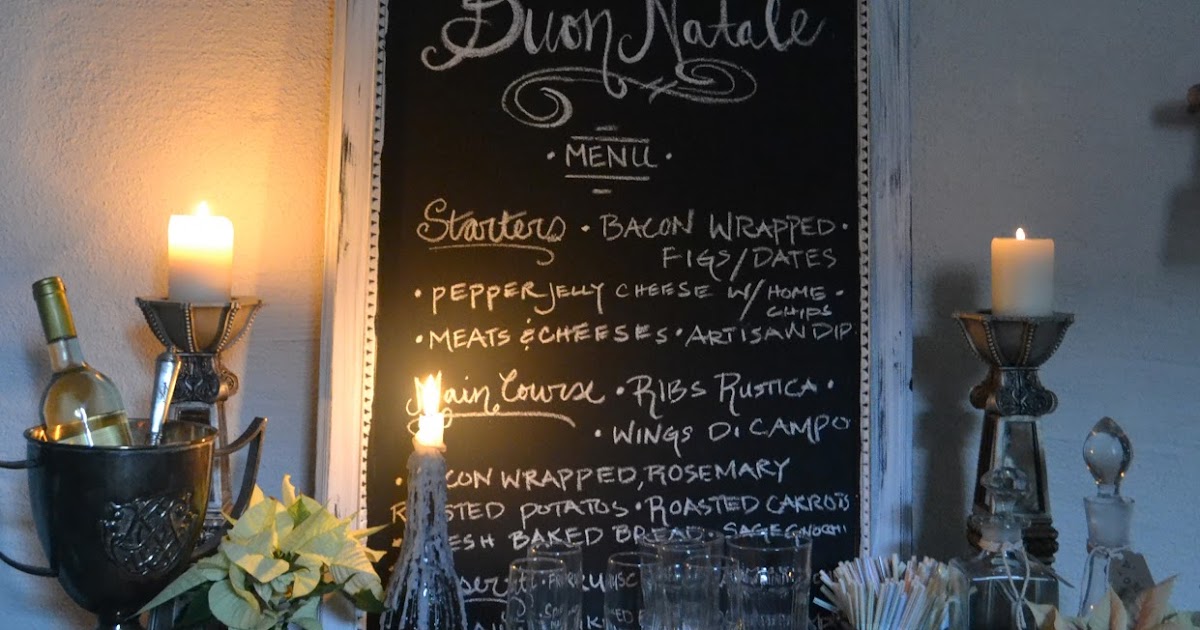 Buon Natale
· MENU ·
Starters · BACON WRAPPED ·
FIGS/DATES
· PEPPER JELLY CHEESE W/ HOME ·
CHIPS
· MEATS & CHEESES · ARTISAN DIP
Main Course · RIBS RUSTICA ·
· WINGS DI CAMPO
WRAPPED, ROSEMARY
POTATOS · ROASTED CARROTS
BAKED BREAD · SAGE GNOCCHI